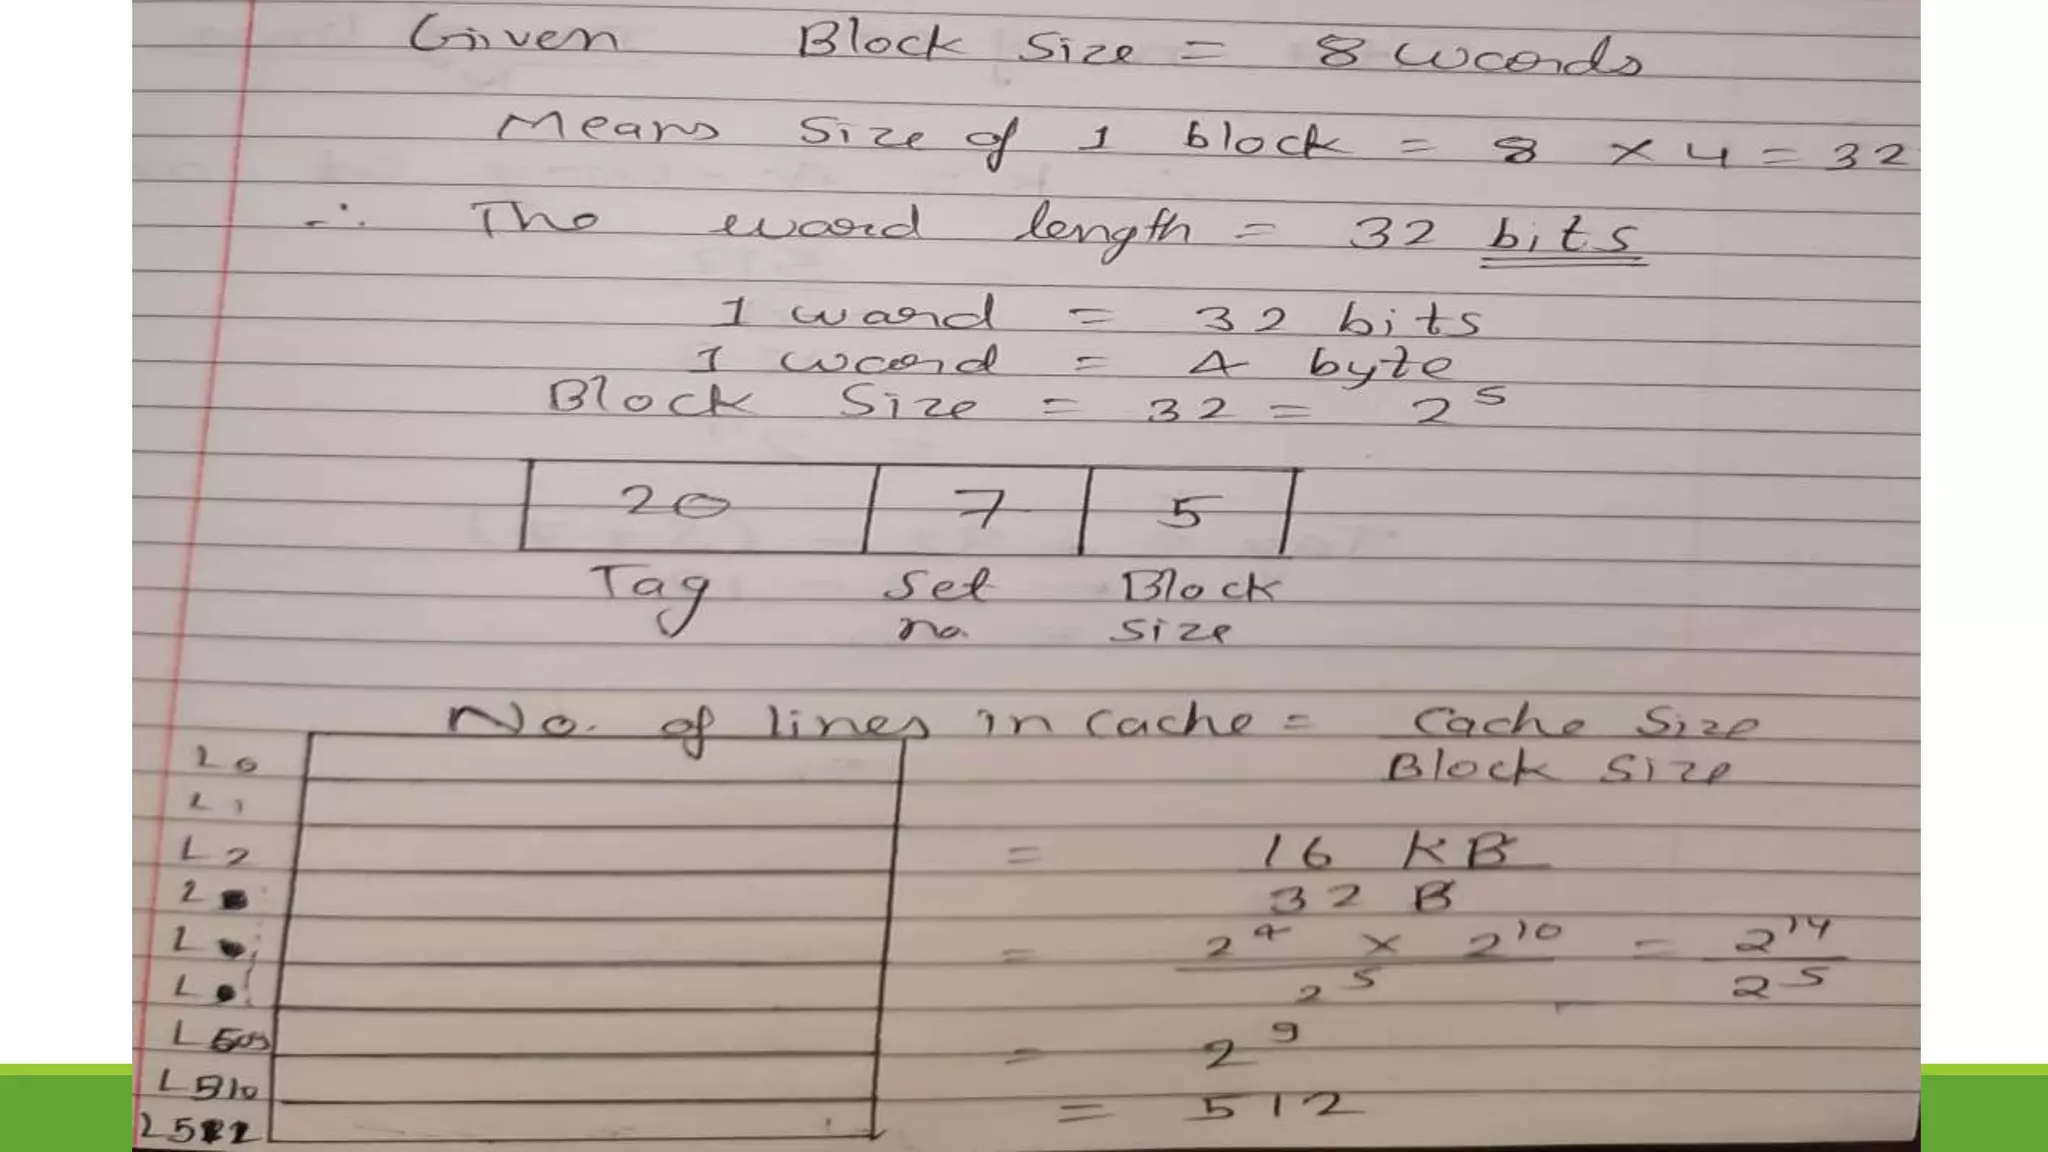 Given Block Size = 8 words
Means Size of 1 block = 8 × 4 = 32
∴ The word length = 32 bits
1 word = 32 bits
1 word = 4 byte
Block Size = 32 = 2^5
20 7 5
Tag Set no. Block size
No. of lines in cache = Cache Size / Block Size
L0
L1
L2 = 16 KB / 32 B
L
L = 2^4 × 2^10 / 2^5 = 2^14 / 2^5
L
L509 = 2^9
L510 = 512
L511